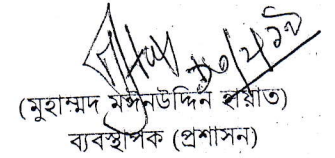 (মুহাম্মদ মঈনউদ্দিন হায়াত)
ব্যবস্থাপক (প্রশাসন)